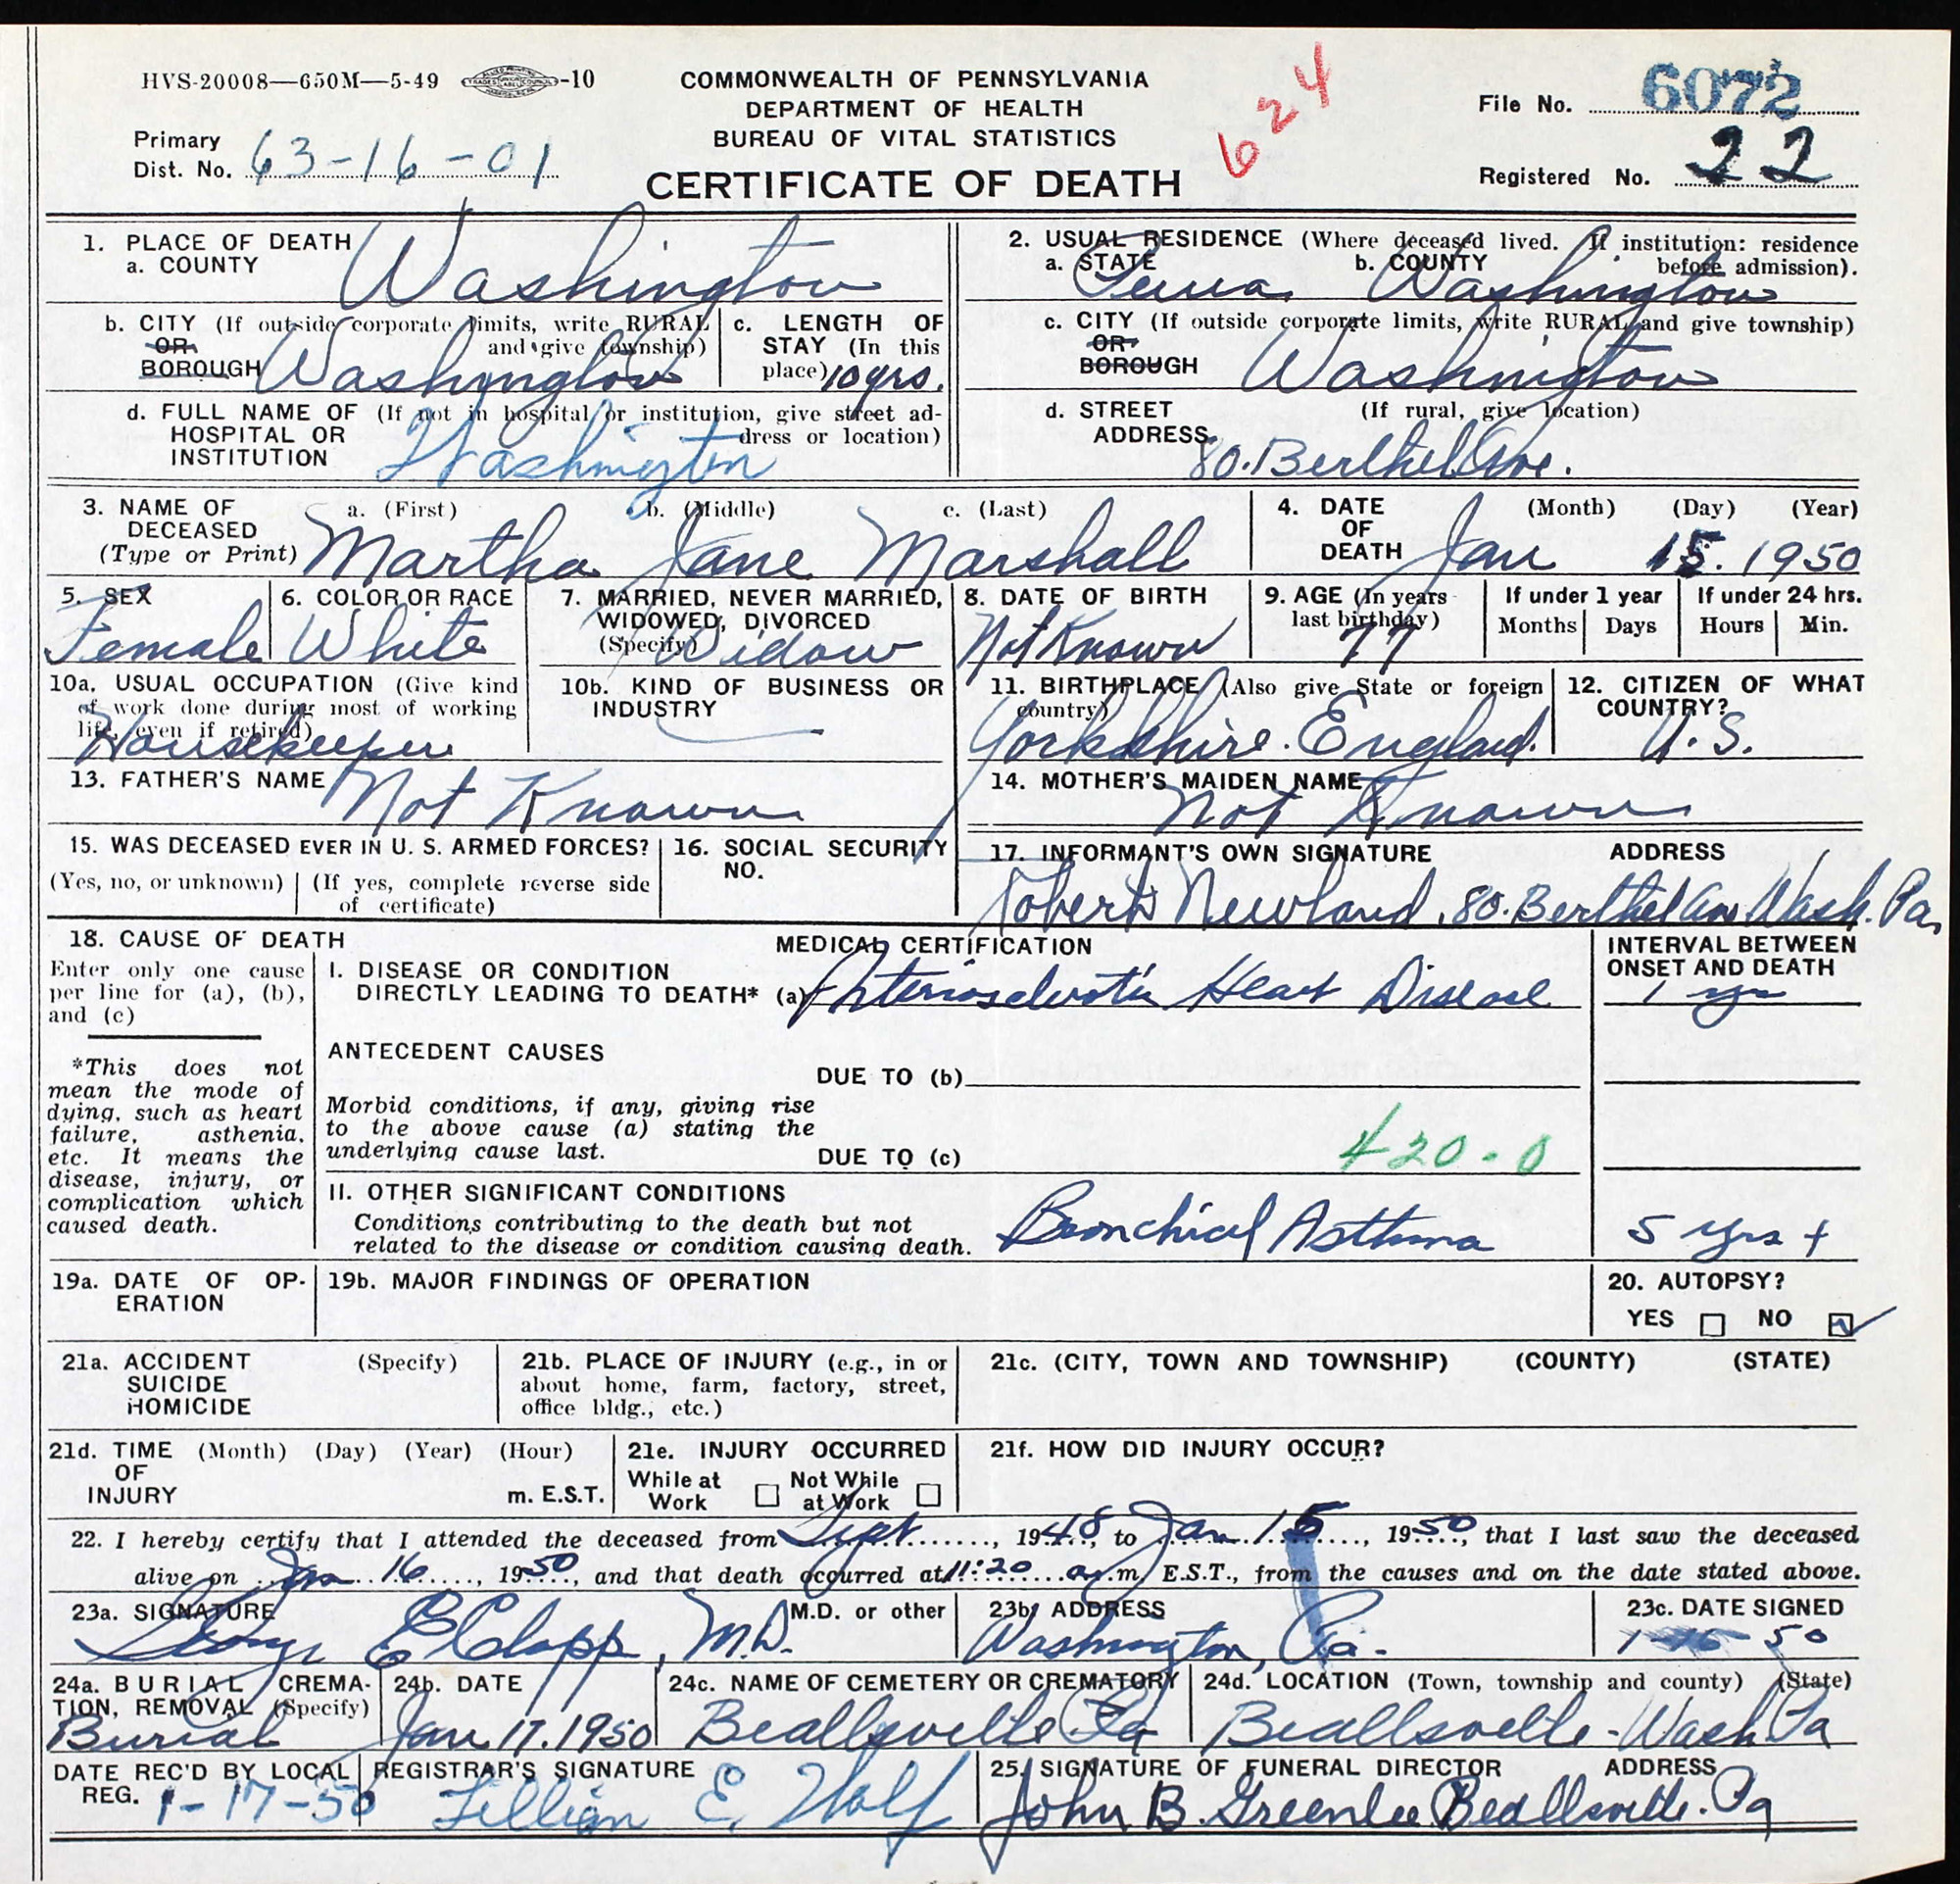 HVS-20008—650M—5-49 -10
COMMONWEALTH OF PENNSYLVANIA
DEPARTMENT OF HEALTH
BUREAU OF VITAL STATISTICS
CERTIFICATE OF DEATH
624
File No. 6072
Primary
Dist. No. 63-16-01
Registered No. 22
1. PLACE OF DEATH
a. COUNTY Washington
b. CITY (If outside corporate limits, write RURAL
OR and give township)
BOROUGH Washington
c. LENGTH OF
STAY (In this
place) 10 yrs.
d. FULL NAME OF (If not in hospital or institution, give street ad-
HOSPITAL OR dress or location)
INSTITUTION Washington
2. USUAL RESIDENCE (Where deceased lived. If institution: residence
a. STATE b. COUNTY before admission).
Penna. Washington
c. CITY (If outside corporate limits, write RURAL and give township)
OR
BOROUGH Washington
d. STREET (If rural, give location)
ADDRESS 80. Berthel Ave.
3. NAME OF a. (First) b. (Middle) c. (Last)
DECEASED
(Type or Print) Martha Jane Marshall
4. DATE (Month) (Day) (Year)
OF
DEATH Jan 15. 1950
5. SEX
Female
6. COLOR OR RACE
White
7. MARRIED, NEVER MARRIED,
WIDOWED, DIVORCED
(Specify) Widow
8. DATE OF BIRTH
Not Known
9. AGE (In years
last birthday)
77
If under 1 year
Months Days
If under 24 hrs.
Hours Min.
10a. USUAL OCCUPATION (Give kind
of work done during most of working
life, even if retired)
Housekeeper
10b. KIND OF BUSINESS OR
INDUSTRY
11. BIRTHPLACE (Also give State or foreign
country)
Yorkshire. England.
12. CITIZEN OF WHAT
COUNTRY?
U.S.
13. FATHER'S NAME
Not Known
14. MOTHER'S MAIDEN NAME
Not Known
15. WAS DECEASED EVER IN U. S. ARMED FORCES?
(Yes, no, or unknown) (If yes, complete reverse side
of certificate)
16. SOCIAL SECURITY
NO.
17. INFORMANT'S OWN SIGNATURE ADDRESS
Robert Newland, 80. Berthel Ave Wash. Pa.
18. CAUSE OF DEATH
Enter only one cause
per line for (a), (b),
and (c)
*This does not
mean the mode of
dying, such as heart
failure, asthenia,
etc. It means the
disease, injury, or
complication which
caused death.
MEDICAL CERTIFICATION
I. DISEASE OR CONDITION
DIRECTLY LEADING TO DEATH* (a) Arteriosclerotic Heart Disease
INTERVAL BETWEEN
ONSET AND DEATH
1 yr
ANTECEDENT CAUSES
DUE TO (b)
Morbid conditions, if any, giving rise
to the above cause (a) stating the
underlying cause last.
DUE TO (c)
420-0
II. OTHER SIGNIFICANT CONDITIONS
Conditions contributing to the death but not
related to the disease or condition causing death.
Bronchial Asthma
5 yrs +
19a. DATE OF OP-
ERATION
19b. MAJOR FINDINGS OF OPERATION
20. AUTOPSY?
YES NO
21a. ACCIDENT (Specify)
SUICIDE
HOMICIDE
21b. PLACE OF INJURY (e.g., in or
about home, farm, factory, street,
office bldg., etc.)
21c. (CITY, TOWN AND TOWNSHIP) (COUNTY) (STATE)
21d. TIME (Month) (Day) (Year) (Hour)
OF
INJURY m. E.S.T.
21e. INJURY OCCURRED
While at Not While
Work at Work
21f. HOW DID INJURY OCCUR?
22. I hereby certify that I attended the deceased from Sept., 1948, to Jan. 15, 1950, that I last saw the deceased
alive on Jan 16, 1950, and that death occurred at 11:20 a.m. E.S.T., from the causes and on the date stated above.
23a. SIGNATURE M.D. or other
George E Clapp, M.D.
23b. ADDRESS
Washington, Pa.
23c. DATE SIGNED
1-16-50
24a. BURIAL, CREMA-
TION, REMOVAL (Specify)
Burial
24b. DATE
Jan 17. 1950
24c. NAME OF CEMETERY OR CREMATORY
Beallsville Pa
24d. LOCATION (Town, township and county) (State)
Beallsville - Wash Pa
DATE REC'D BY LOCAL
REG. 1-17-50
REGISTRAR'S SIGNATURE
Lillian E. Wolf
25. SIGNATURE OF FUNERAL DIRECTOR ADDRESS
John B. Greenlee Beallsville. Pa